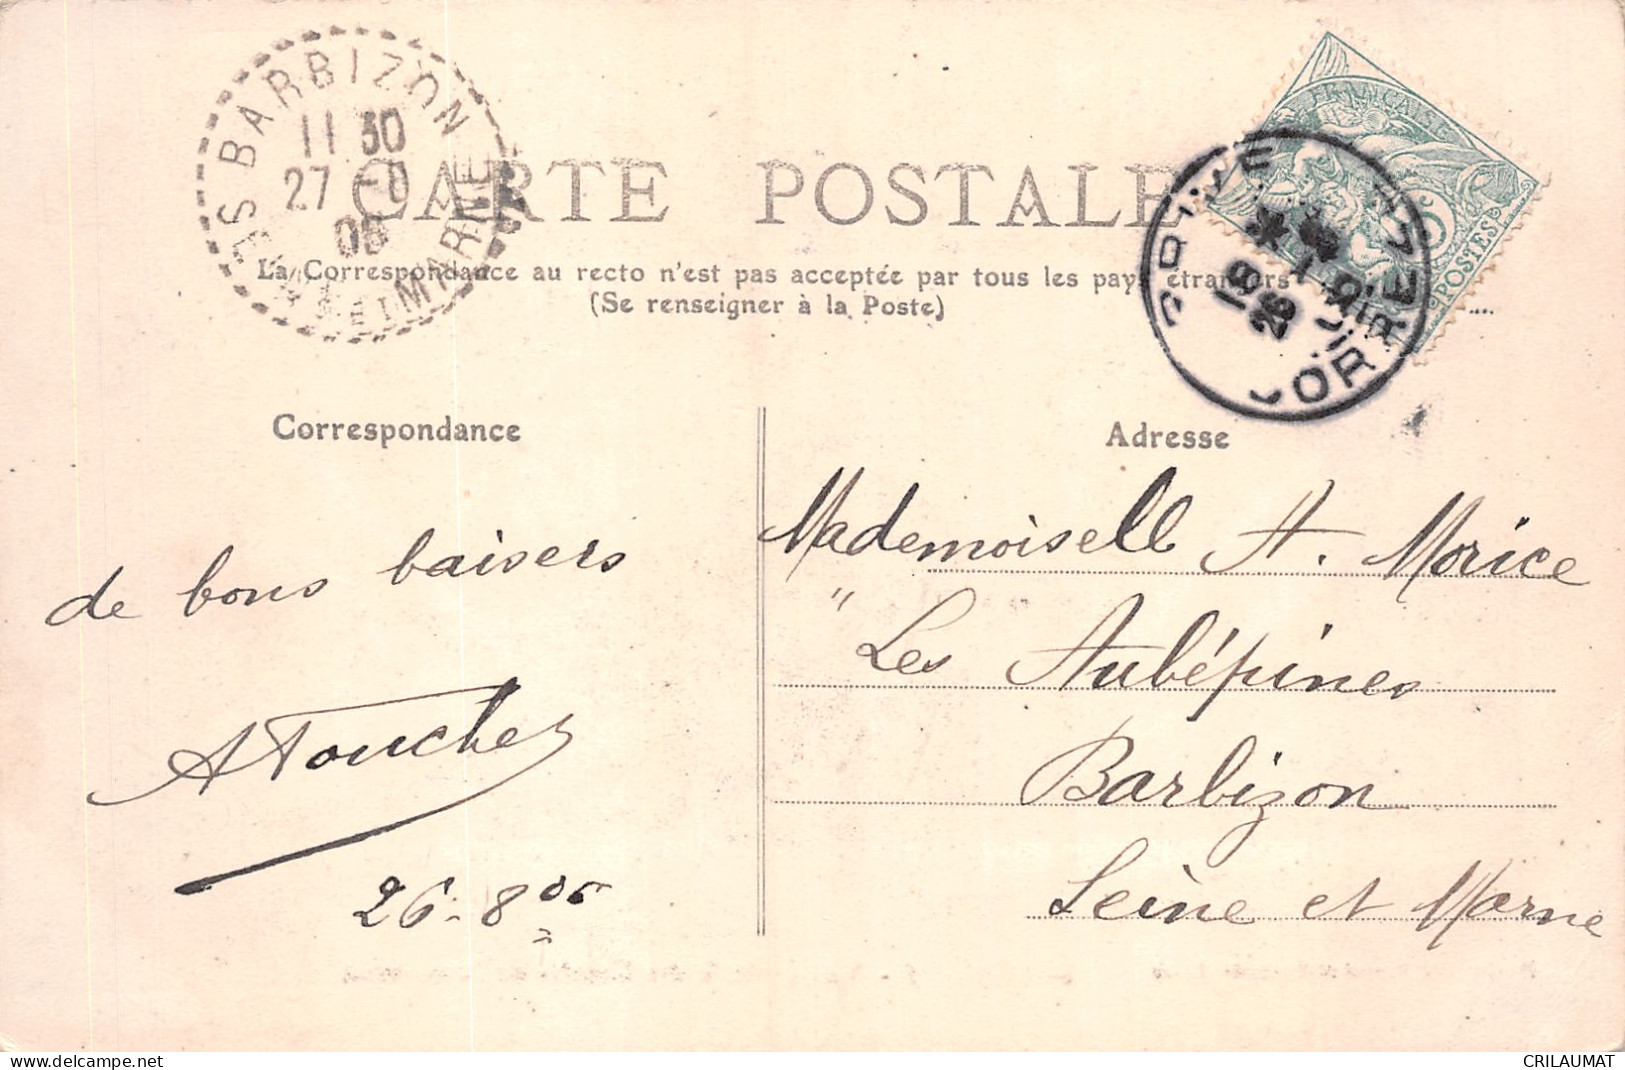 BARBIZON
11 30
27 -8
SEINE-ET-MARNE
FRANÇAISE
POSTES
5
BRIVE
CORREZE
CARTE POSTALE
La Correspondance au recto n'est pas acceptée par tous les pays étrangers
(Se renseigner à la Poste)
Correspondance
de bons baisers
A Touchez
26-8 06
Adresse
Mademoiselle A. Morice
" Les Aubépines
Barbizon
Seine et Marne
www.delcampe.net
CRILAUMAT